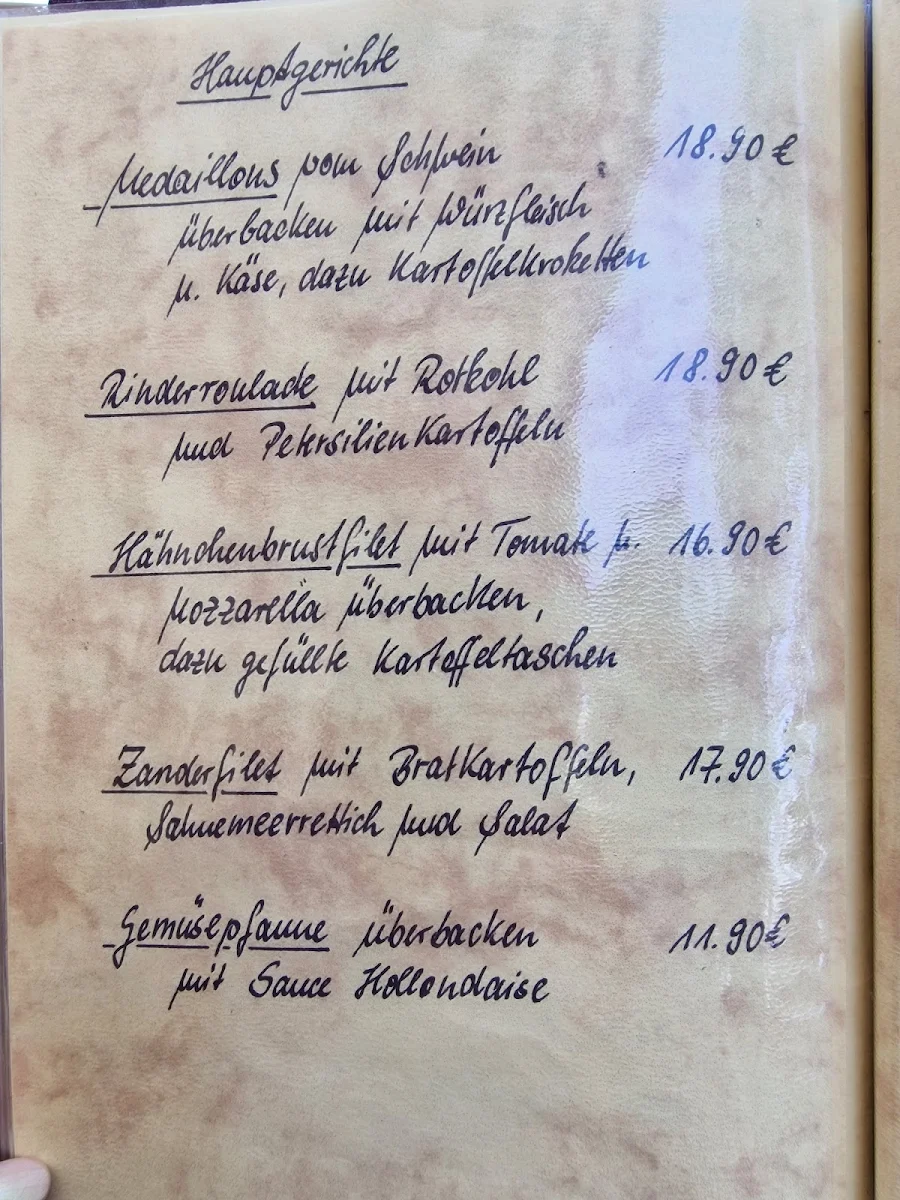 Hauptgerichte
Medaillons vom Schwein 18.90 €
überbacken mit Würzfleisch
u. Käse, dazu Kartoffelkroketten
Rinderroulade mit Rotkohl 18.90 €
und Petersilienkartoffeln
Hähnchenbrustfilet mit Tomate u. 16.90 €
Mozzarella überbacken,
dazu gefüllte Kartoffeltaschen
Zanderfilet mit Bratkartoffeln, 17.90 €
Sahnemeerrettich und Salat
Gemüsepfanne überbacken 11.90 €
mit Sauce Hollondaise